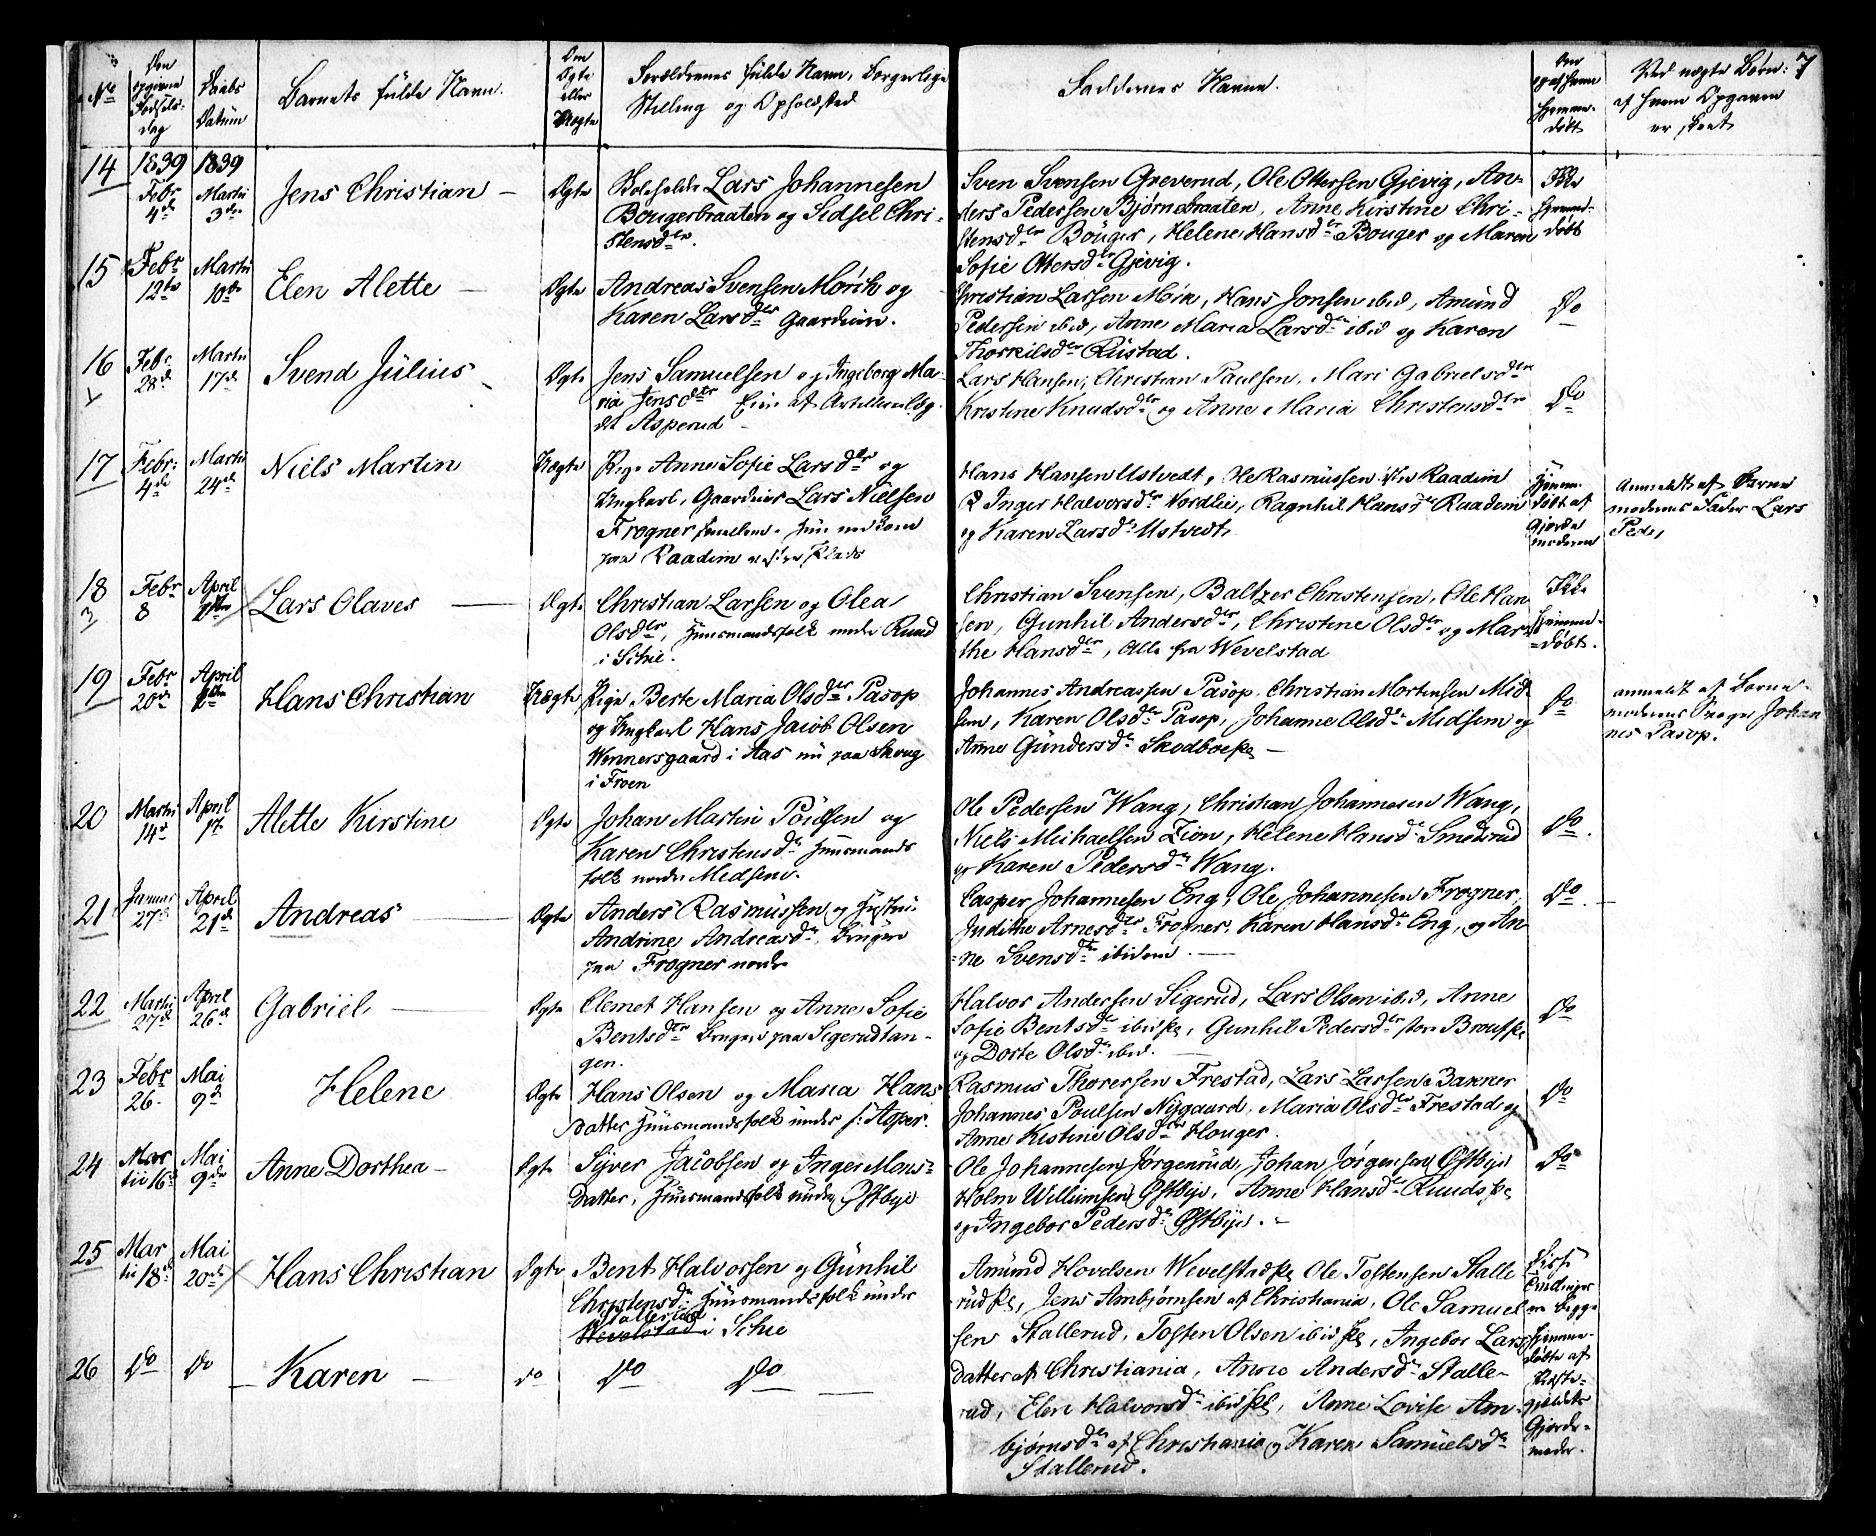 7
No
Den opgivne Fødsels-dag
Daabs Datum
Barnets fulde Navn.
Om Ægte eller Uægte
Forældrenes fulde Navn, borgerlige
Stilling og Opholdsted
Faddernes Navne.
hjemme-døbt
Ved uægte Børn:
af hvem Opgaven
er skeet
14
1839 Febr 4de
1839 Martii 3die
Jens Christian
Ægte
Lars Johannesen
Bougerbraaten og Sidsel Chri-
stensdtr.
Sven Svensen Greverud, Ole Ottersen Gjevig, An-
ders Pedersen Bjørnebraaten, Anne Kirstine Chri-
stensdtr Bouger, Helene Hansdtr Bouger og Maren
Sofie Ottersdtr Gjevig.
Ikke hjemme-døbt
15
Febr 12te
Martii 10de
Elen Alette
Ægte
Andreas Svensen Mørk og
Karen Larsdtr Gaardeier.
Christian Larsen Mørk, Hans Jonsen ibid, Amund
Pedersen ibid, Anne Maria Larsdtr ibid og Karen
Thorkilsdtr Rustad.
Do
16
Febr. 28de
Martii 17de
Svend Julius
Ægte
Jens Samuelsen og Ingeborg Ma-
ria Jensdtr
Asperud
Lars Hansen, Christian Paulsen, Mari Gabrielsdtr
Kristine Knudsdtr og Anne Maria Christensdtr
Do
17
Febr: 4de
Martii 24de
Niels Martin
Uægte
Pige Anne Sofie Larsdtr og
Ungkarl, Gaardeier Lars Nielsen
Frogner
paa Raadim
Hans Hansen Ustvedt, Ole Rasmussen Raadim
Inger Halvorsdtr Nordlie, Ragnhil Hansdtr Raadim
og Karen Larsdtr Ustvedt.
Hjemme-døbt af Gjorde-moderen
Anmeldt af Barne
moderens Fader Lars
Peder
18
3
Febr 8
April 1ste
Lars Olaves
Ægte
Christian Larsen og Olea
Olsdtr, Huusmandsfolk under Ruud
i Schie.
Christian Svensen, Baltzer Christensen, Ole Han
sen, Gunhil Andersdtr, Christine Olsdtr og Mar
the Hansdtr, Alle fra Wevelstad
Ikke hjemme-døbt.
19
Febr 20de
April 1ste
Hans Christian
Uægte
Pige Berte Maria Olsdtr Pasop
og Ungkarl Hans Jacob Olsen
Wennersgaard i Aas nu paa Skoug
i Froen
Johannes Andreassen Pasop, Christian Mortensen Mid
sem, Karen Olsdtr Pasop, Johanne Olsdtr Midsem og
Anne Gundersdtr
Do
anmeldt af Barne-
moderens Svoger Johan
nes Pasop.
20
Martii 14de
April 1ste
Alette Kirstine
Ægte
Johan Martin og
Karen Christensdtr Huusmands
folk under Midsem.
Ole Pedersen Wang, Christian Johannesen Wang,
Niels Michaelsen Zion, Helene Hansdtr Smedsrud
og Karen Pedersdtr Wang.
Do
21
Januar 27de
April 21de
Andreas
Ægte
Anders Rasmussen og Hustru
Andrine Andreasdtr, Brugere
paa Frogner nordre
Casper Johannesen Eng, Ole Johannesen Frogner,
Judithe Arnesdtr Frogner, Karen Hansdtr Eng, og An
ne Svensdtr ibidem.
Do
22
Martii 27de
April 26de
Gabriel
Ægte
Clemet Hansen og Anne Sofie
Bentsdtr Brugere paa Segerudtan-
gen.
Halvor Andersen Sigerud, Lars Olsen ibid, Anne
Sofie Bentsdtr, Gunhil Pedersdtr
og Dorte Olsdtr ibid.
Do
23
Febr 26
Mai 9de
Helene
Ægte
Hans Olsen og Maria Hans
datter Huusmandsfolk under Asper.
Rasmus Thorersen Frestad, Lars Larsen Bakker
Johannes Poulsen Nygaard, Maria Olsdtr Frestad og
Anne Kistine Olsdtr Houger.
Do
24
Martii 16de
Mai 9de
Anne Dorthea
Ægte
Syver Jacobsen og Inger Mons-
datter, Huusmandsfolk under Østbye
Ole Johannesen Jørgenrud, Johan Jørgensen Østbye
Holm Willumsen Østbye, Anne Hansdtr
og Ingebor Pedersdtr Østbye.
Do
25
Martii 18de
Mai 20de
Hans Christian
Ægte
Bent Halvorsen og Gunhil
Christensdtr Huusmandsfolk under
Stallerud
Wevelstad i Schie
Amund Hovelsen, Ole Tostensen Stalle
rud, Jens Ambjørnsen af Christiania, Ole Samuel
sen Stallerud, Tosten Olsen, Ingebor Lars
datter af Christiania, Anne Andersdtr Stalle-
rud, Elen Halvorsdtr, Anne Lovise Am-
bjørnsdtr af Christiania og Karen Samuelsdtr
Stallerud.
Disse Tvillinger ere begge hjemme-døbte af Præste-gjeldets Gjorde-moder.
26
Do
Do
Karen
Do
Do
Do